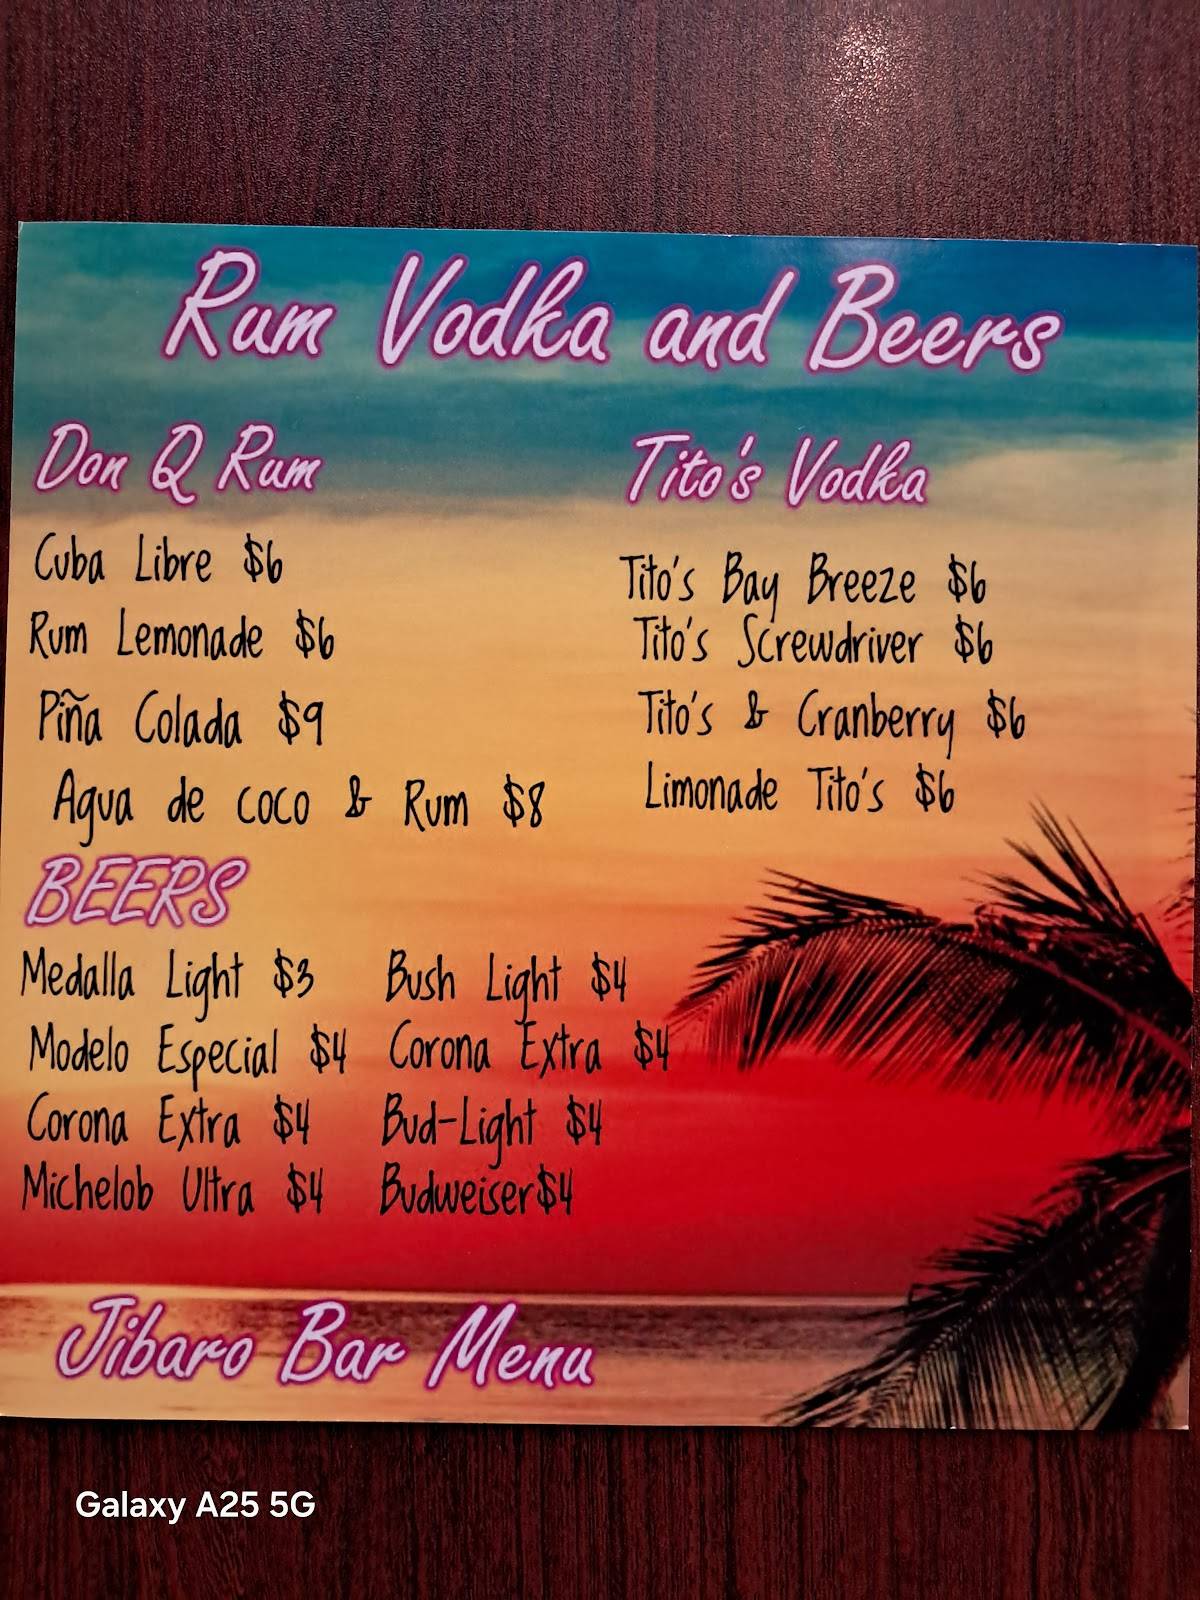 Rum Vodka and Beers
Don Q Rum
Cuba Libre $6
Rum Lemonade $6
Piña Colada $9
Agua de coco & Rum $8
Tito's Vodka
Tito's Bay Breeze $6
Tito's Screwdriver $6
Tito's & Cranberry $6
Limonade Tito's $6
BEERS
Medalla Light $3
Modelo Especial $4
Corona Extra $4
Michelob Ultra $4
Bush Light $4
Corona Extra $4
Bud-Light $4
Budweiser$4
Jibaro Bar Menu
Galaxy A25 5G